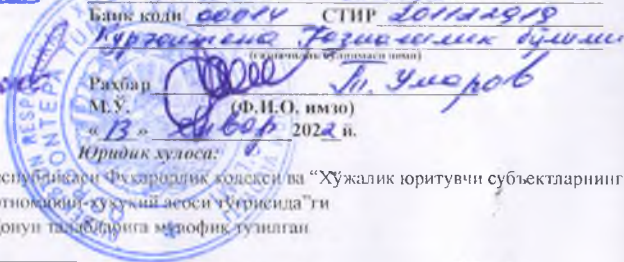 Банк коди 00014 СТИР 201122919
Қўрғонтепа Ғазначилик бўлими
Раҳбар Т. Умаров
М.Ў. (Ф.И.О. имзо)
« 13 » Январ 2022 й.
Юридик хулоса:
Республикаси Фуқаролик кодекси ва “Хўжалик юритувчи субъектларнинг
ҳуқуқий асоси тўғрисида”ги
қонун талабларига мувофиқ тузилган